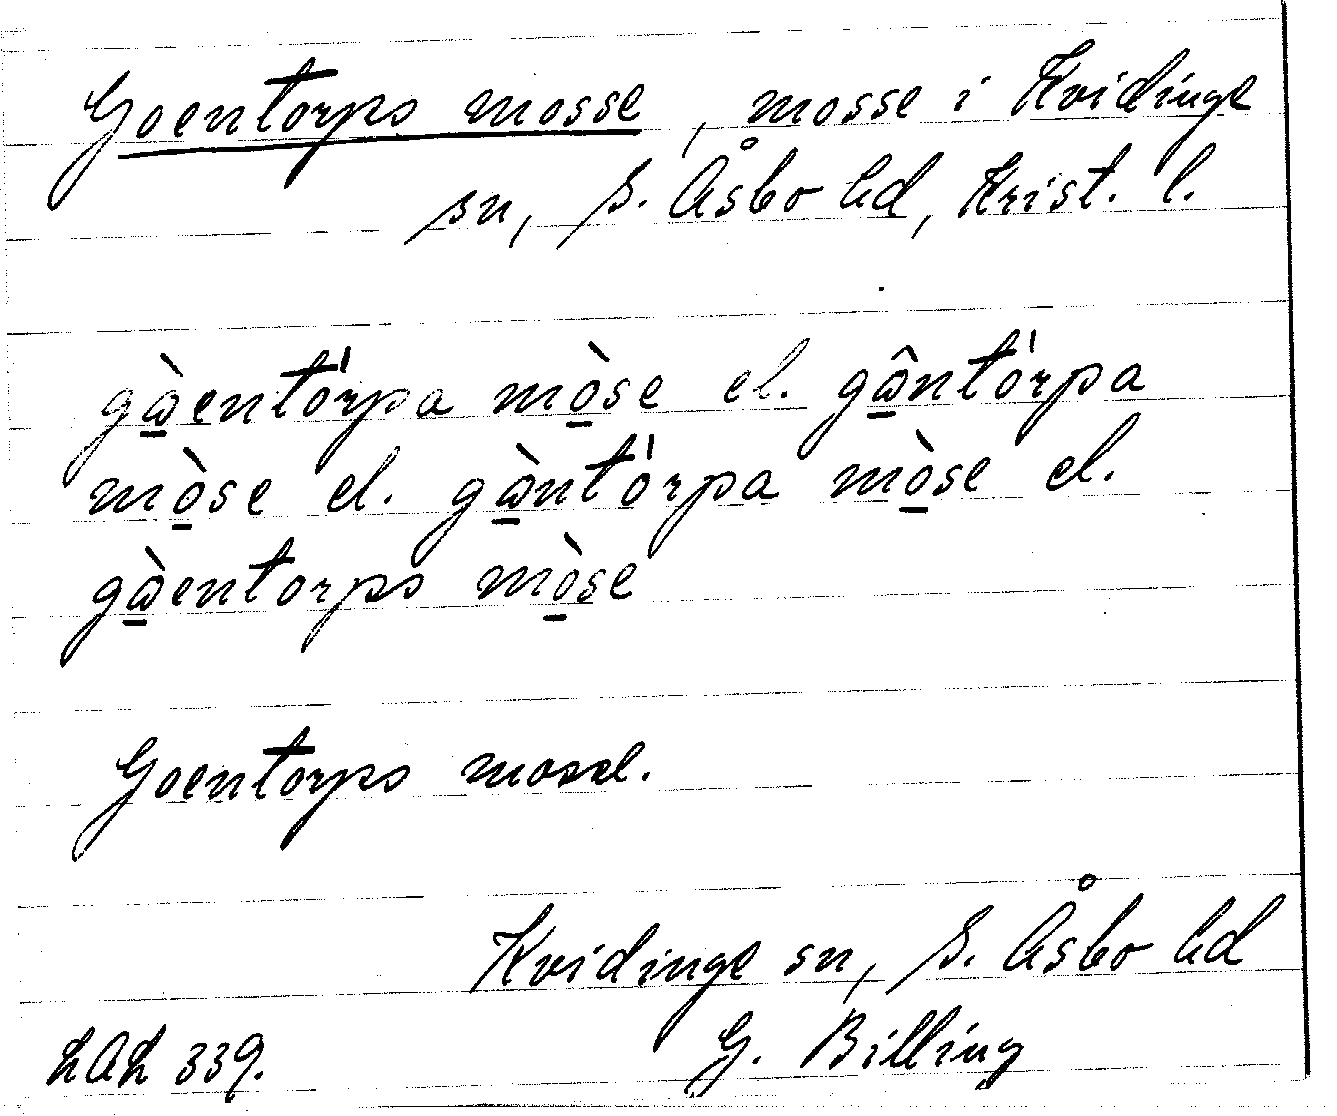 Goentorps mosse, mosse i Kvidinge
sn, S. Åsbo hd, Krist. l.
gò̠entórpa mò̠se el. gô̠ntórpa
mò̠se el. gò̠ntórpa mò̠se el.
gò̠entorps mò̠se
Goentorps mosse.
Kvidinge sn, S. Åsbo hd
LAL 339. G. Billing